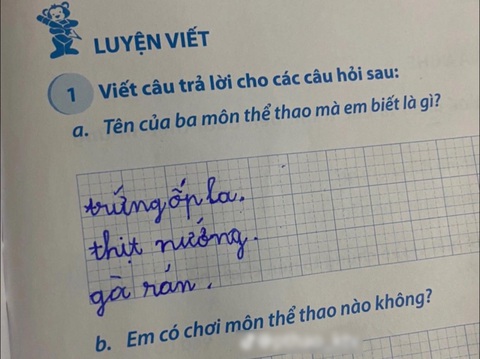 LUYỆN VIẾT
1 Viết câu trả lời cho các câu hỏi sau:
a. Tên của ba môn thể thao mà em biết là gì?
trứng ốp la.
thịt nướng.
gà rán.
b. Em có chơi môn thể thao nào không?